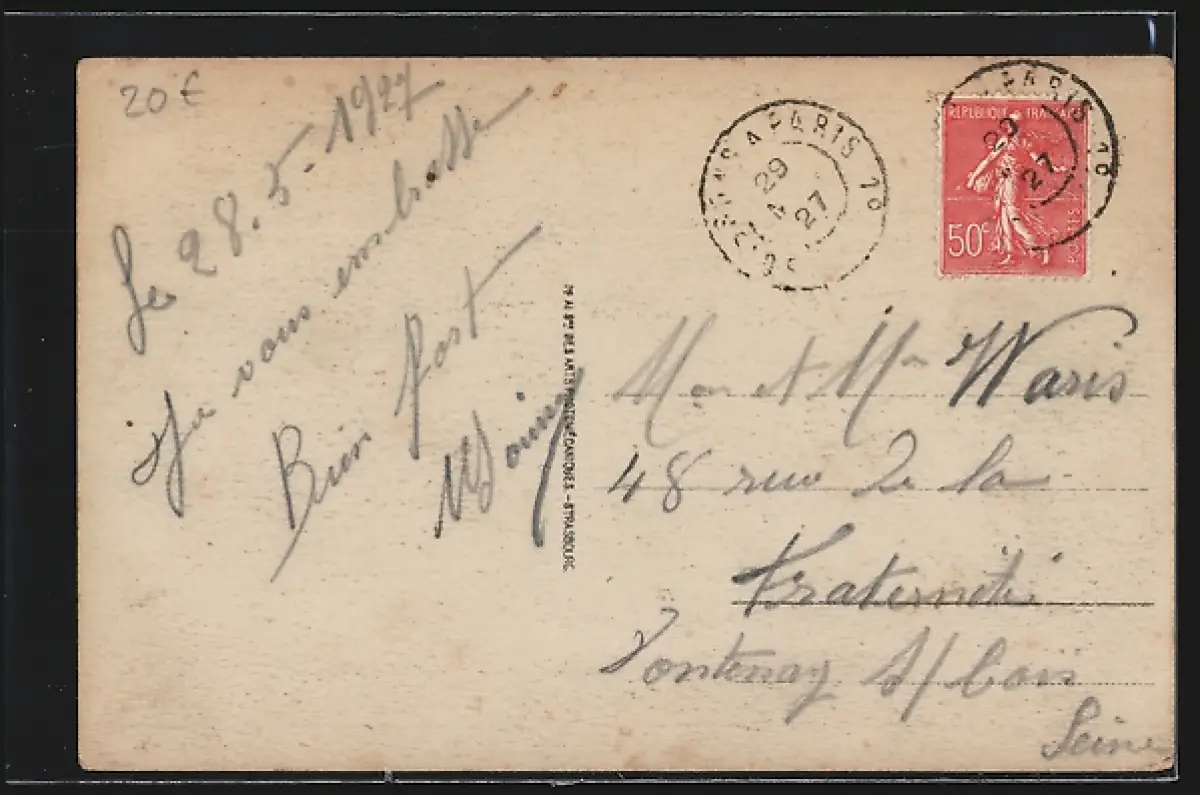 20 €
Le 28. 5. 1927
Je vous embrasse
Bien fort
A PARIS 1°
29
27
A PARIS 1°
29
27
REPUBLIQUE FRANÇAISE
50c
POSTES
DES ARTS STRASBOURG
Mr et Mme Waris
48 rue de la
Fraternité
Fontenay s/bois
Seine